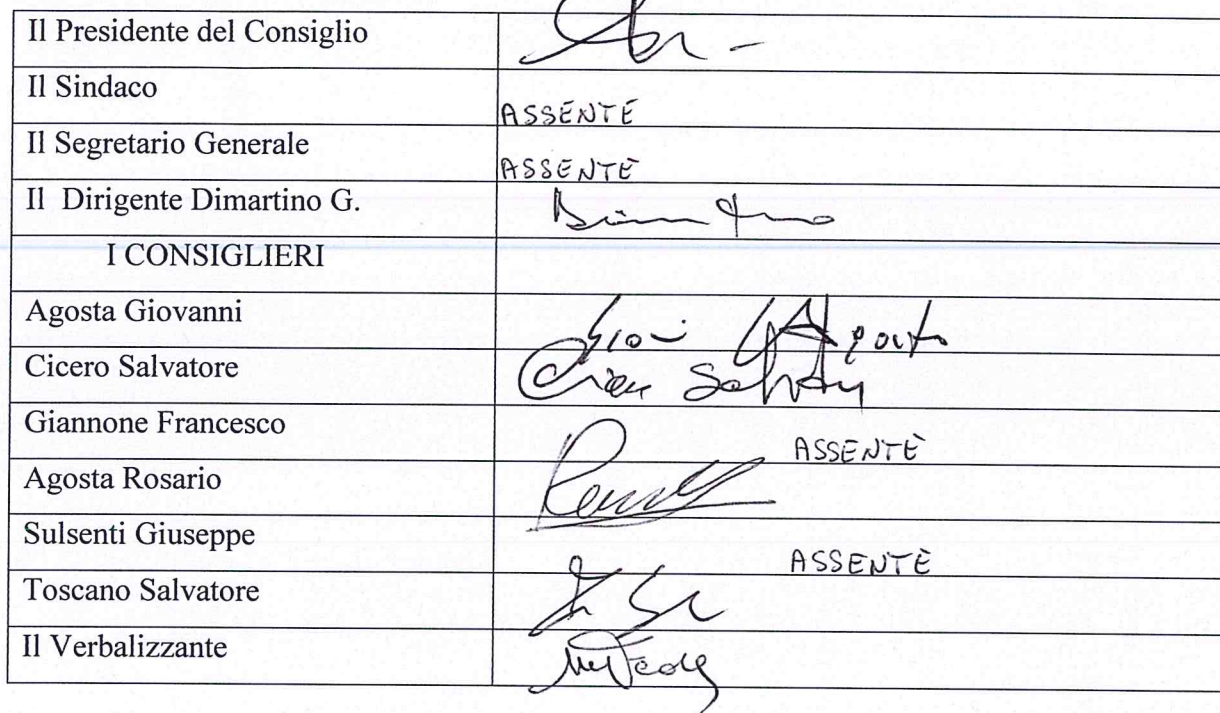 Il Presidente del Consiglio
Il Sindaco ASSENTE
Il Segretario Generale ASSENTE
Il Dirigente Dimartino G.
I CONSIGLIERI
Agosta Giovanni
Cicero Salvatore
Giannone Francesco ASSENTE
Agosta Rosario
Sulsenti Giuseppe ASSENTE
Toscano Salvatore
Il Verbalizzante